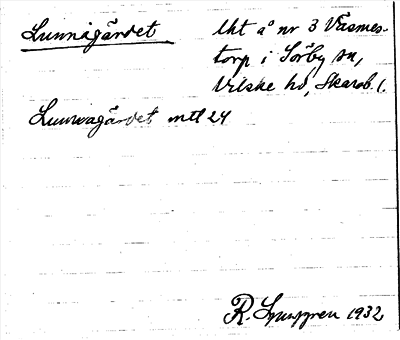 Lunnagärdet lht å nr 3 Väsmes-
torp i Sörby sn,
Vilske hd, Skarab. l.
Lunnagärdet mtl 24
R. Ljunggren 1932